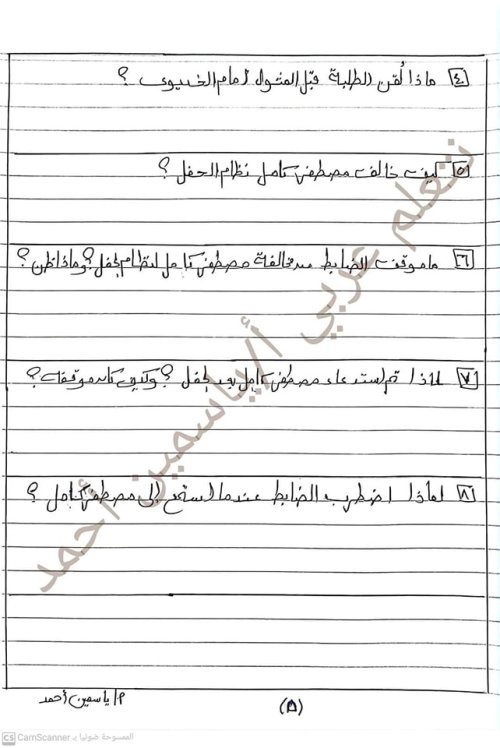 ٤ ماذا لُقن الطلبة قبل المثول أمام الخديوى ؟
٥ كيف خالف مصطفى كامل نظام الحفل ؟
٦ ما موقف الضابط من مخالفة مصطفى كامل لنظام الحفل؟ وماذا ظن؟
٧ لماذا تم استدعاء مصطفى كامل بعد الحفل ؟ وكيف كان موقفه ؟
٨ لماذا اضطرب الضابط عندما استمع إلى مصطفى كامل ؟
نتعلم عربي أ/ياسمين أحمد
(٥)
م/ ياسمين أحمد
CS CamScanner الممسوحة ضوئيا بـ